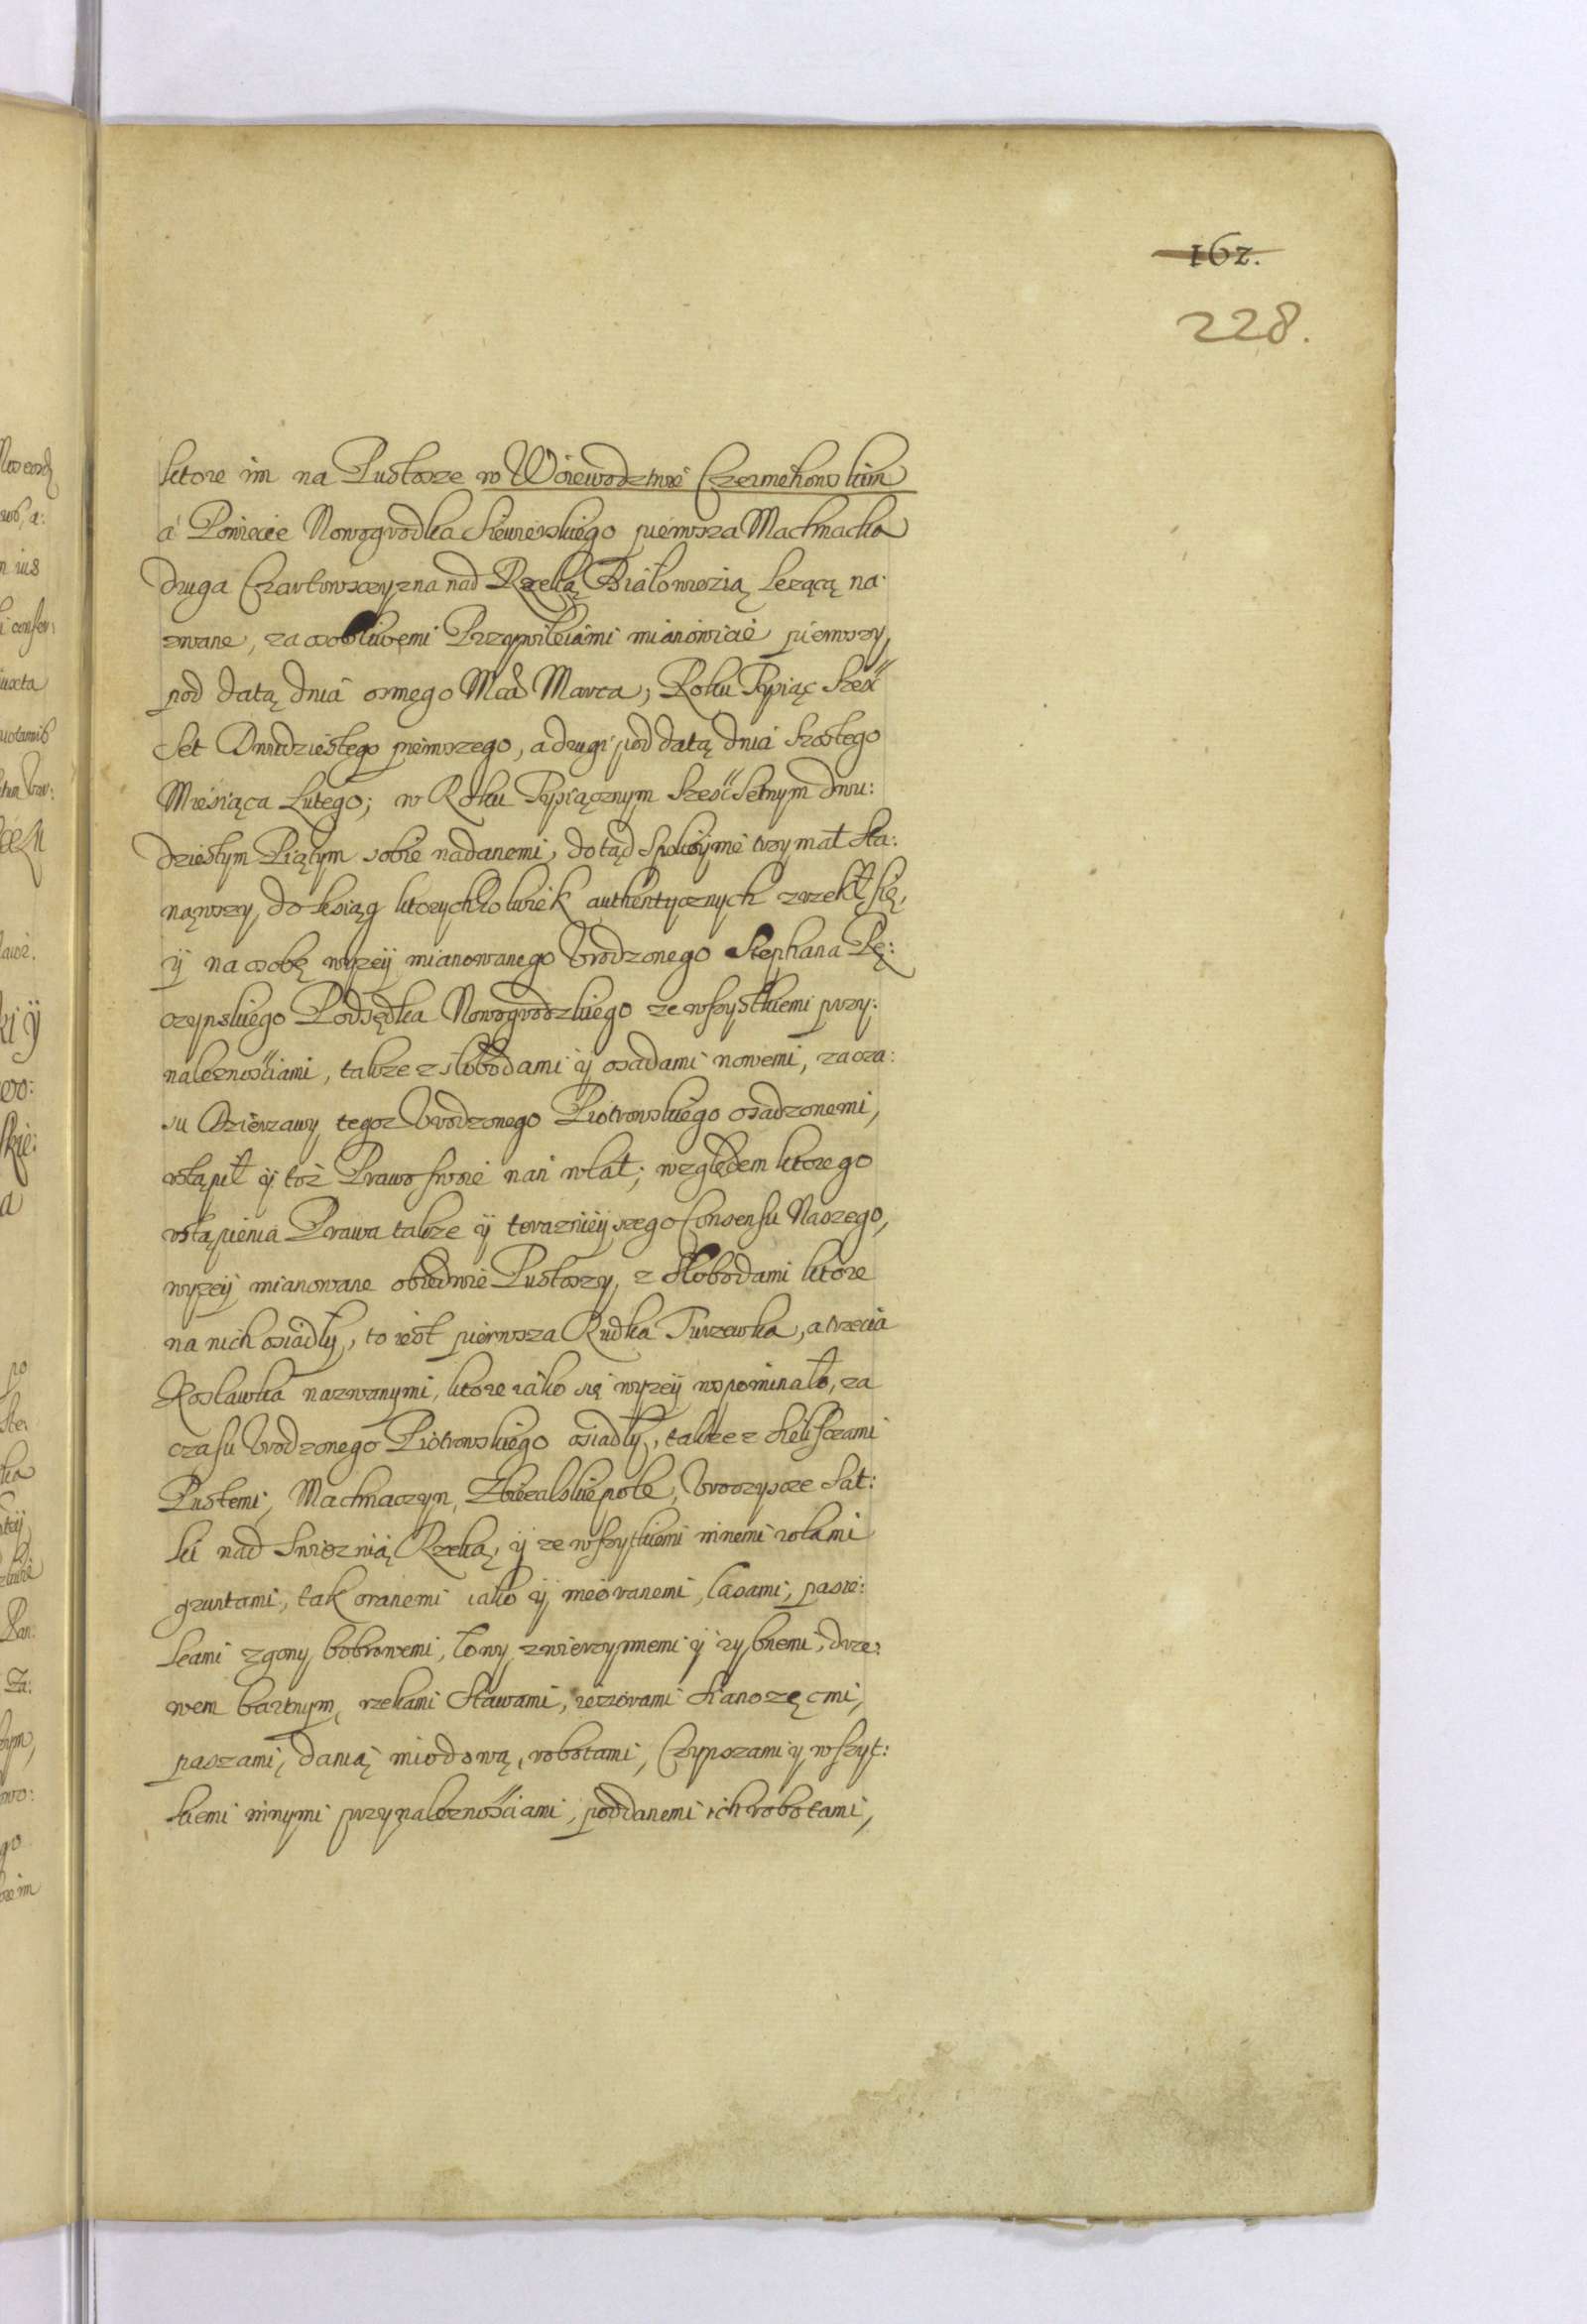 162.
228.
ktore im na Pustosze w Woiewodztwie Czerniehowskim
á Powiecie Nowogrodka Siewierskiego pierwsza Machnacka
druga Czartowszczyzna nad Rzeką Białowieżią leżącą na:
zwane, za osobliwemi Przywileiámi mianowicie pierwszy
pod datą dniá osmego Mca Marca, Roku Tysiąc Sześć
Set Dwudziestego pierwszego, a drugi pod datą dniá szostego
Miesiąca Lutego; w Roku Tysiącznym Sześćsetnym dwu:
dziestym Piątym sobie nadanemi, dotąd spokoynie trzymał sta:
nąwszy do ksiąg ktorychkolwiek authentycznych zrzekł się,
ÿ na osobę wyzeÿ mianowanego Vrodzonego Stephana Pę:
czynskiego Podsędka Nowogrodzkiego ze wszystkiemi przy:
naleznościami, takze z słobodami ÿ osadami nowemi, za cza:
su Dzierzawy tegoz Vrodzonego Piotrowskiego osadzonemi,
vstąpił ÿ toż Prawo swoie nań wlał; względem ktorego
vstąpienia Prawa takze ÿ terazniejszego Consensu Naszego,
wyzeÿ mianowane obiedwie Pustoszy, z Słobodami ktore
na nich osiadły, to iest pierwsza Rudka Turzewka, a trzecia
Rosławka nazwanymi, ktore iáko się wyzeÿ wspominało, za
czasu Vrodzonego Piotrowskiego osiadły, takze z sieliszczami
Pustemi, Machnaczyn, Vroczyszcze Sał:
ki nad Rzeką, ÿ ze wszytkiemi innemi rolami
gruntami, tak oranemi iako ÿ nieoranemi, lasami, pasie:
kami zgony bobrowemi, łowy zwierzynnemi ÿ rybnemi, drze:
wem bartnym, rzekami Stawami, ieziorami Sianozęcmi,
paszami, danią miodową, robotami, Czynszami y wszyt:
kiemi innymi przynaleznościami, poddanemi ich robotami,